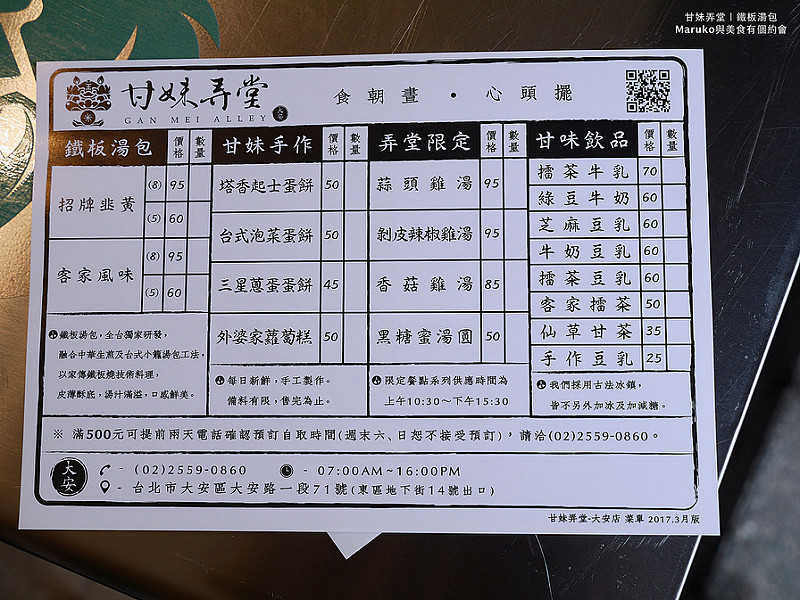 甘妹弄堂│鐵板湯包
Maruko與美食有個約會
甘妹弄堂 大安
GAN MEI ALLEY
食朝晝 • 心頭擺
鐵板湯包 價格 數量
招牌韭黃 (8) 95
(5) 60
客家風味 (8) 95
(5) 60
鐵板湯包,全台獨家研發,
融合中華生煎及台式小籠湯包工法,
以家傳鐵板燒技術料理,
皮薄酥底,湯汁滿溢,口感鮮美。
甘妹手作 價格 數量
塔香起士蛋餅 50
台式泡菜蛋餅 50
三星蔥蛋蛋餅 45
外婆家蘿蔔糕 50
每日新鮮,手工製作。
備料有限,售完為止。
弄堂限定 價格 數量
蒜頭雞湯 95
剝皮辣椒雞湯 95
香菇雞湯 85
黑糖蜜湯圓 50
限定餐點系列供應時間為
上午10:30~下午15:30
甘味飲品 價格 數量
擂茶牛乳 70
綠豆牛奶 60
芝麻豆乳 60
牛奶豆乳 60
擂茶豆乳 60
客家擂茶 50
仙草甘茶 35
手作豆乳 25
我們採用古法冰鎮,
皆不另外加冰及加減糖。
※ 滿500元可提前兩天電話確認預訂自取時間(週末六、日恕不接受預訂),請洽(02)2559-0860。
大安
- (02)2559-0860 - 07:00AM~16:00PM
- 台北市大安區大安路一段71號(東區地下街14號出口)
甘妹弄堂-大安店 菜單 2017.3月版